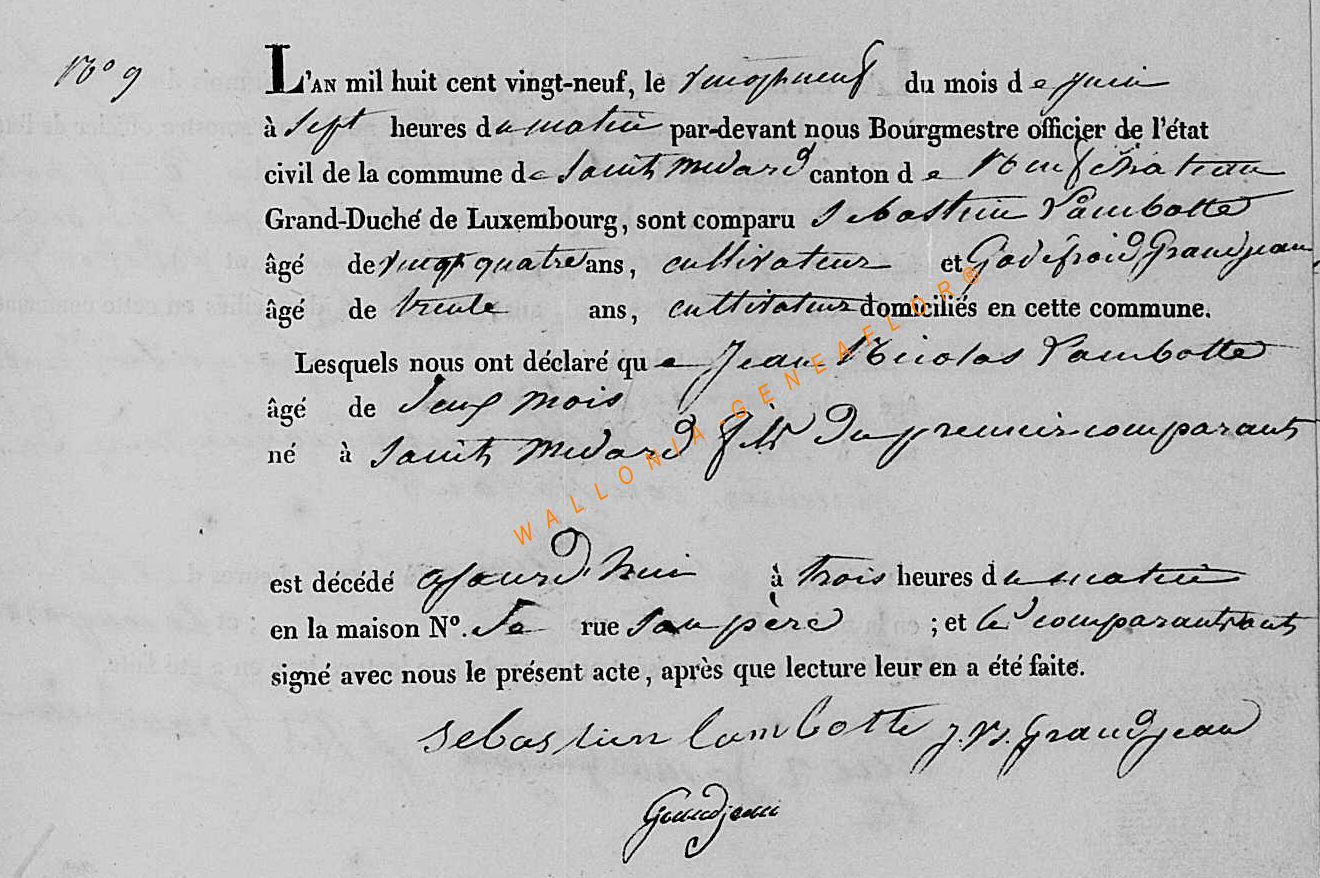 N° 9
L'AN mil huit cent vingt-neuf, le vingtneuf du mois de juin
à sept heures du matin par-devant nous Bourgmestre officier de l'état
civil de la commune de Saint Medard canton de Neufchateau
Grand-Duché de Luxembourg, sont comparu Sebastien Lambotte
âgé de vingt quatre ans, cultivateur et Godefroid Grandjean,
âgé de trente ans, cultivateur domiciliés en cette commune.
Lesquels nous ont déclaré que Jean Nicolas Lambotte
âgé de deux mois
né à Saint Medard fils du premier comparant
est décédé ajourd'hui à trois heures du matin
en la maison N°. de rue son père ; et les comparants ont
signé avec nous le présent acte, après que lecture leur en a été faite.
sebastien lambotte j. Grandjean
Grandjean
WALLONIA-GENEAFLOR®